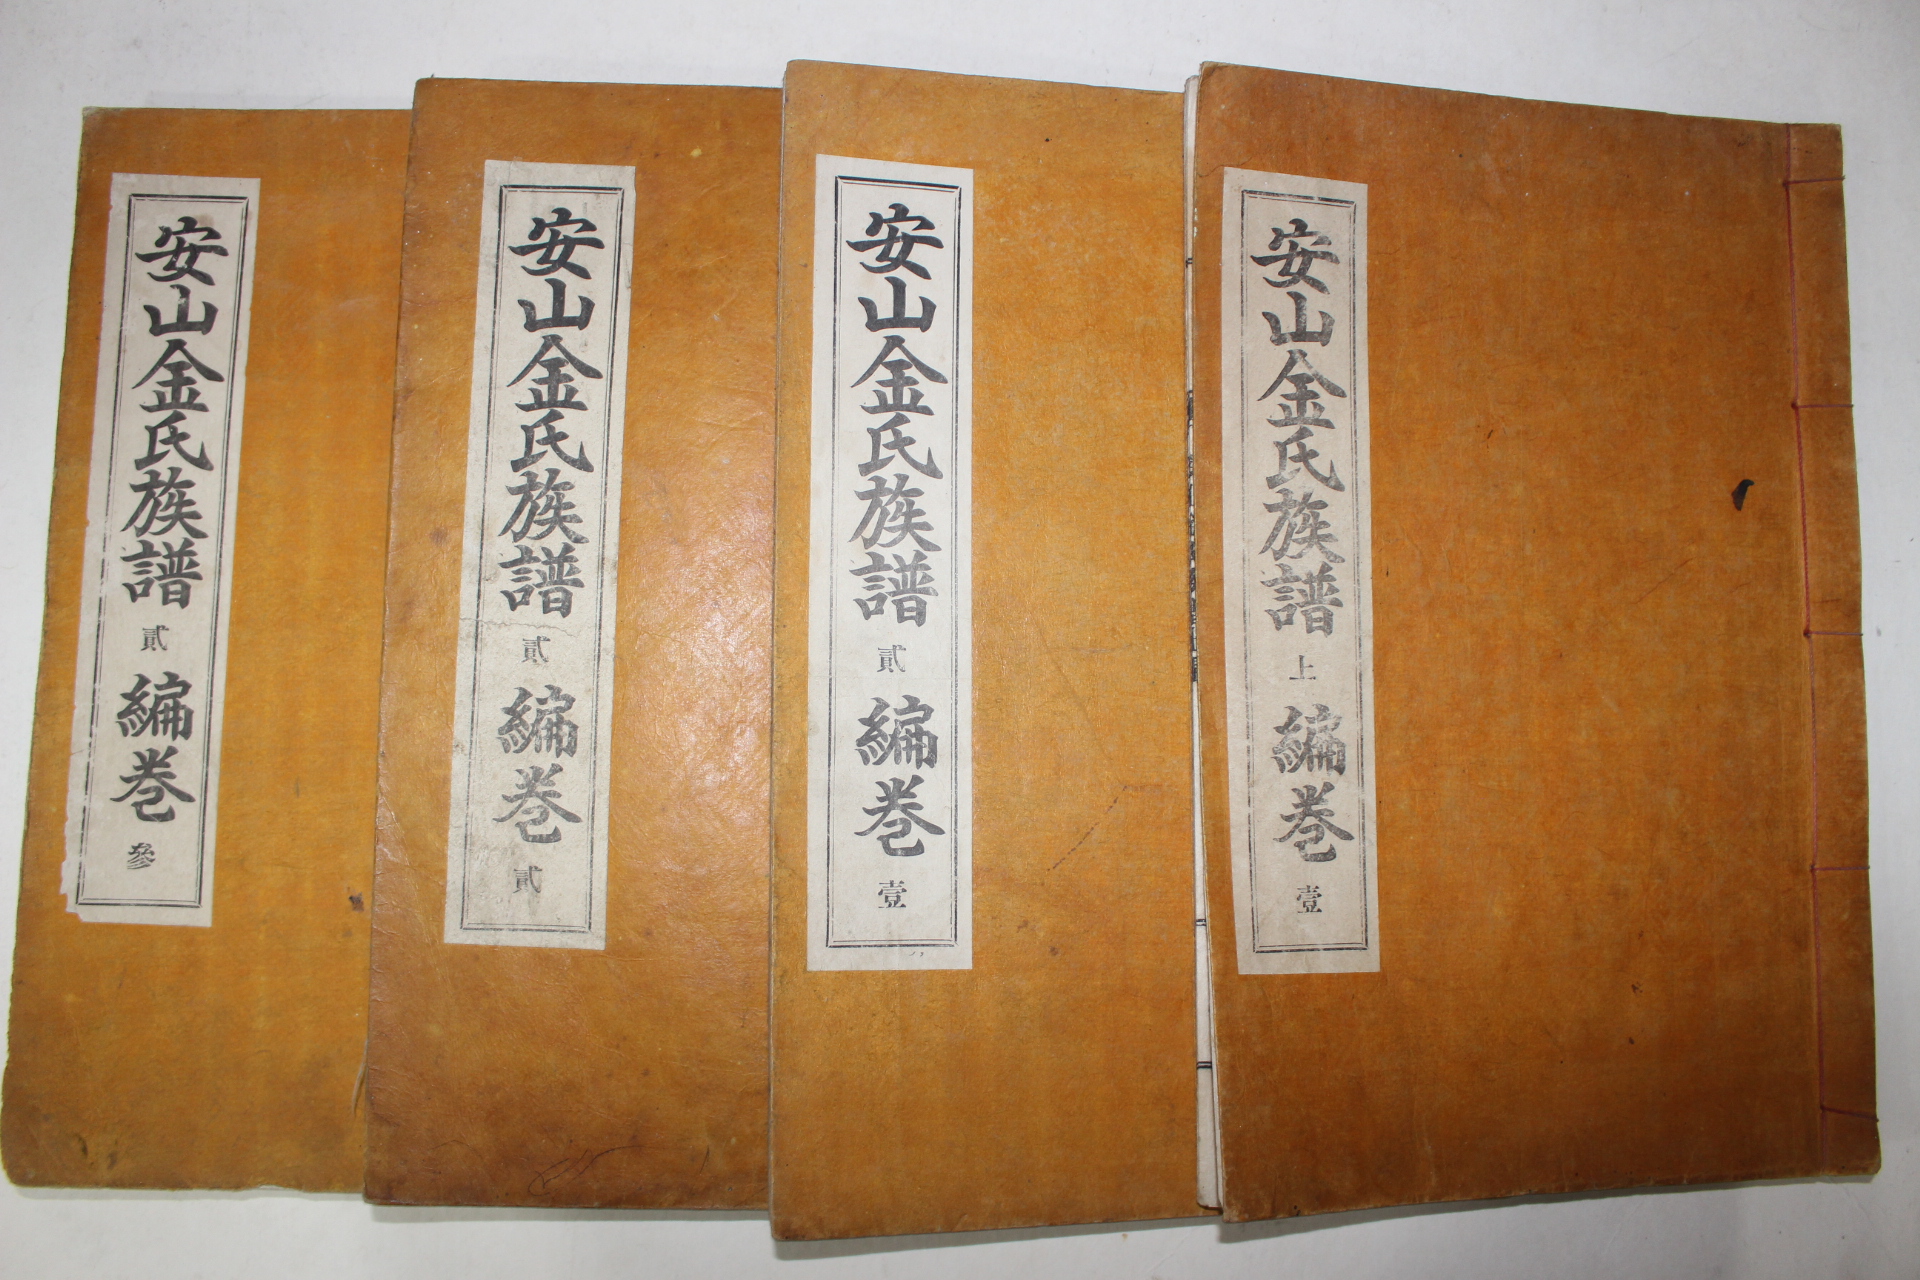 安山金氏族譜 上 編卷 壹
安山金氏族譜 貳 編卷 壹
安山金氏族譜 貳 編卷 貳
安山金氏族譜 貳 編卷 參